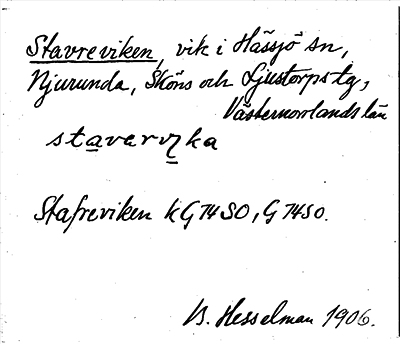 Stavreviken, vik i Hässjö sn,
Njurunda, Sköns och Ljustorps tg,
Västernorrlands län
stavarvika
Stafreviken kG74SO, G74SO.
B. Hesselman 1906.